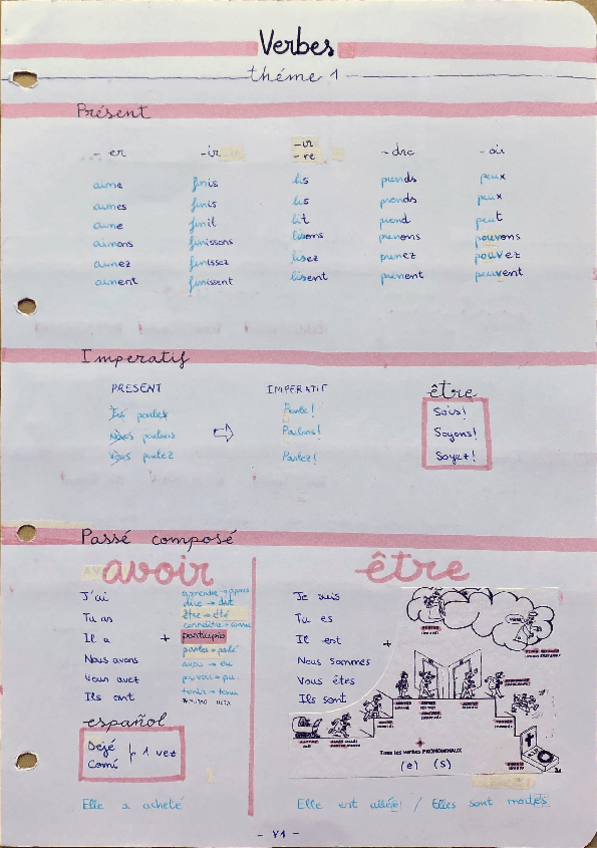 Verbes
thème 1
Présent
- er -ir -ir - re -dre - oir
aime finis lis prends peux
aimes finis lis prends peux
aime finit lit prend peut
aimons finissons lisons prenons pouvons
aimez finissez lisez prenez pouvez
aiment finissent lisent prennent peuvent
Imperatif
PRESENT IMPERATIF être
Tú parles Parle! Sois!
Nous parlons Parlons! Soyons!
Vous parlez Parlez! Soyez!
Passé composé
avoir
J'ai
Tu as
Il a + participio
Nous avons
Vous avez
Ils ont
dire → dit
être → été
parler → parlé
avoir → eu
tenir → tenu
español
Dejé
Comí
1 vez
Elle a acheté
être
Je suis
Tu es
Il est +
Nous sommes
Vous êtes
Ils sont
Tous les verbes PRONOMINAUX
(e) (s)
Elle est allée! / Elles sont mortes
- V1 -